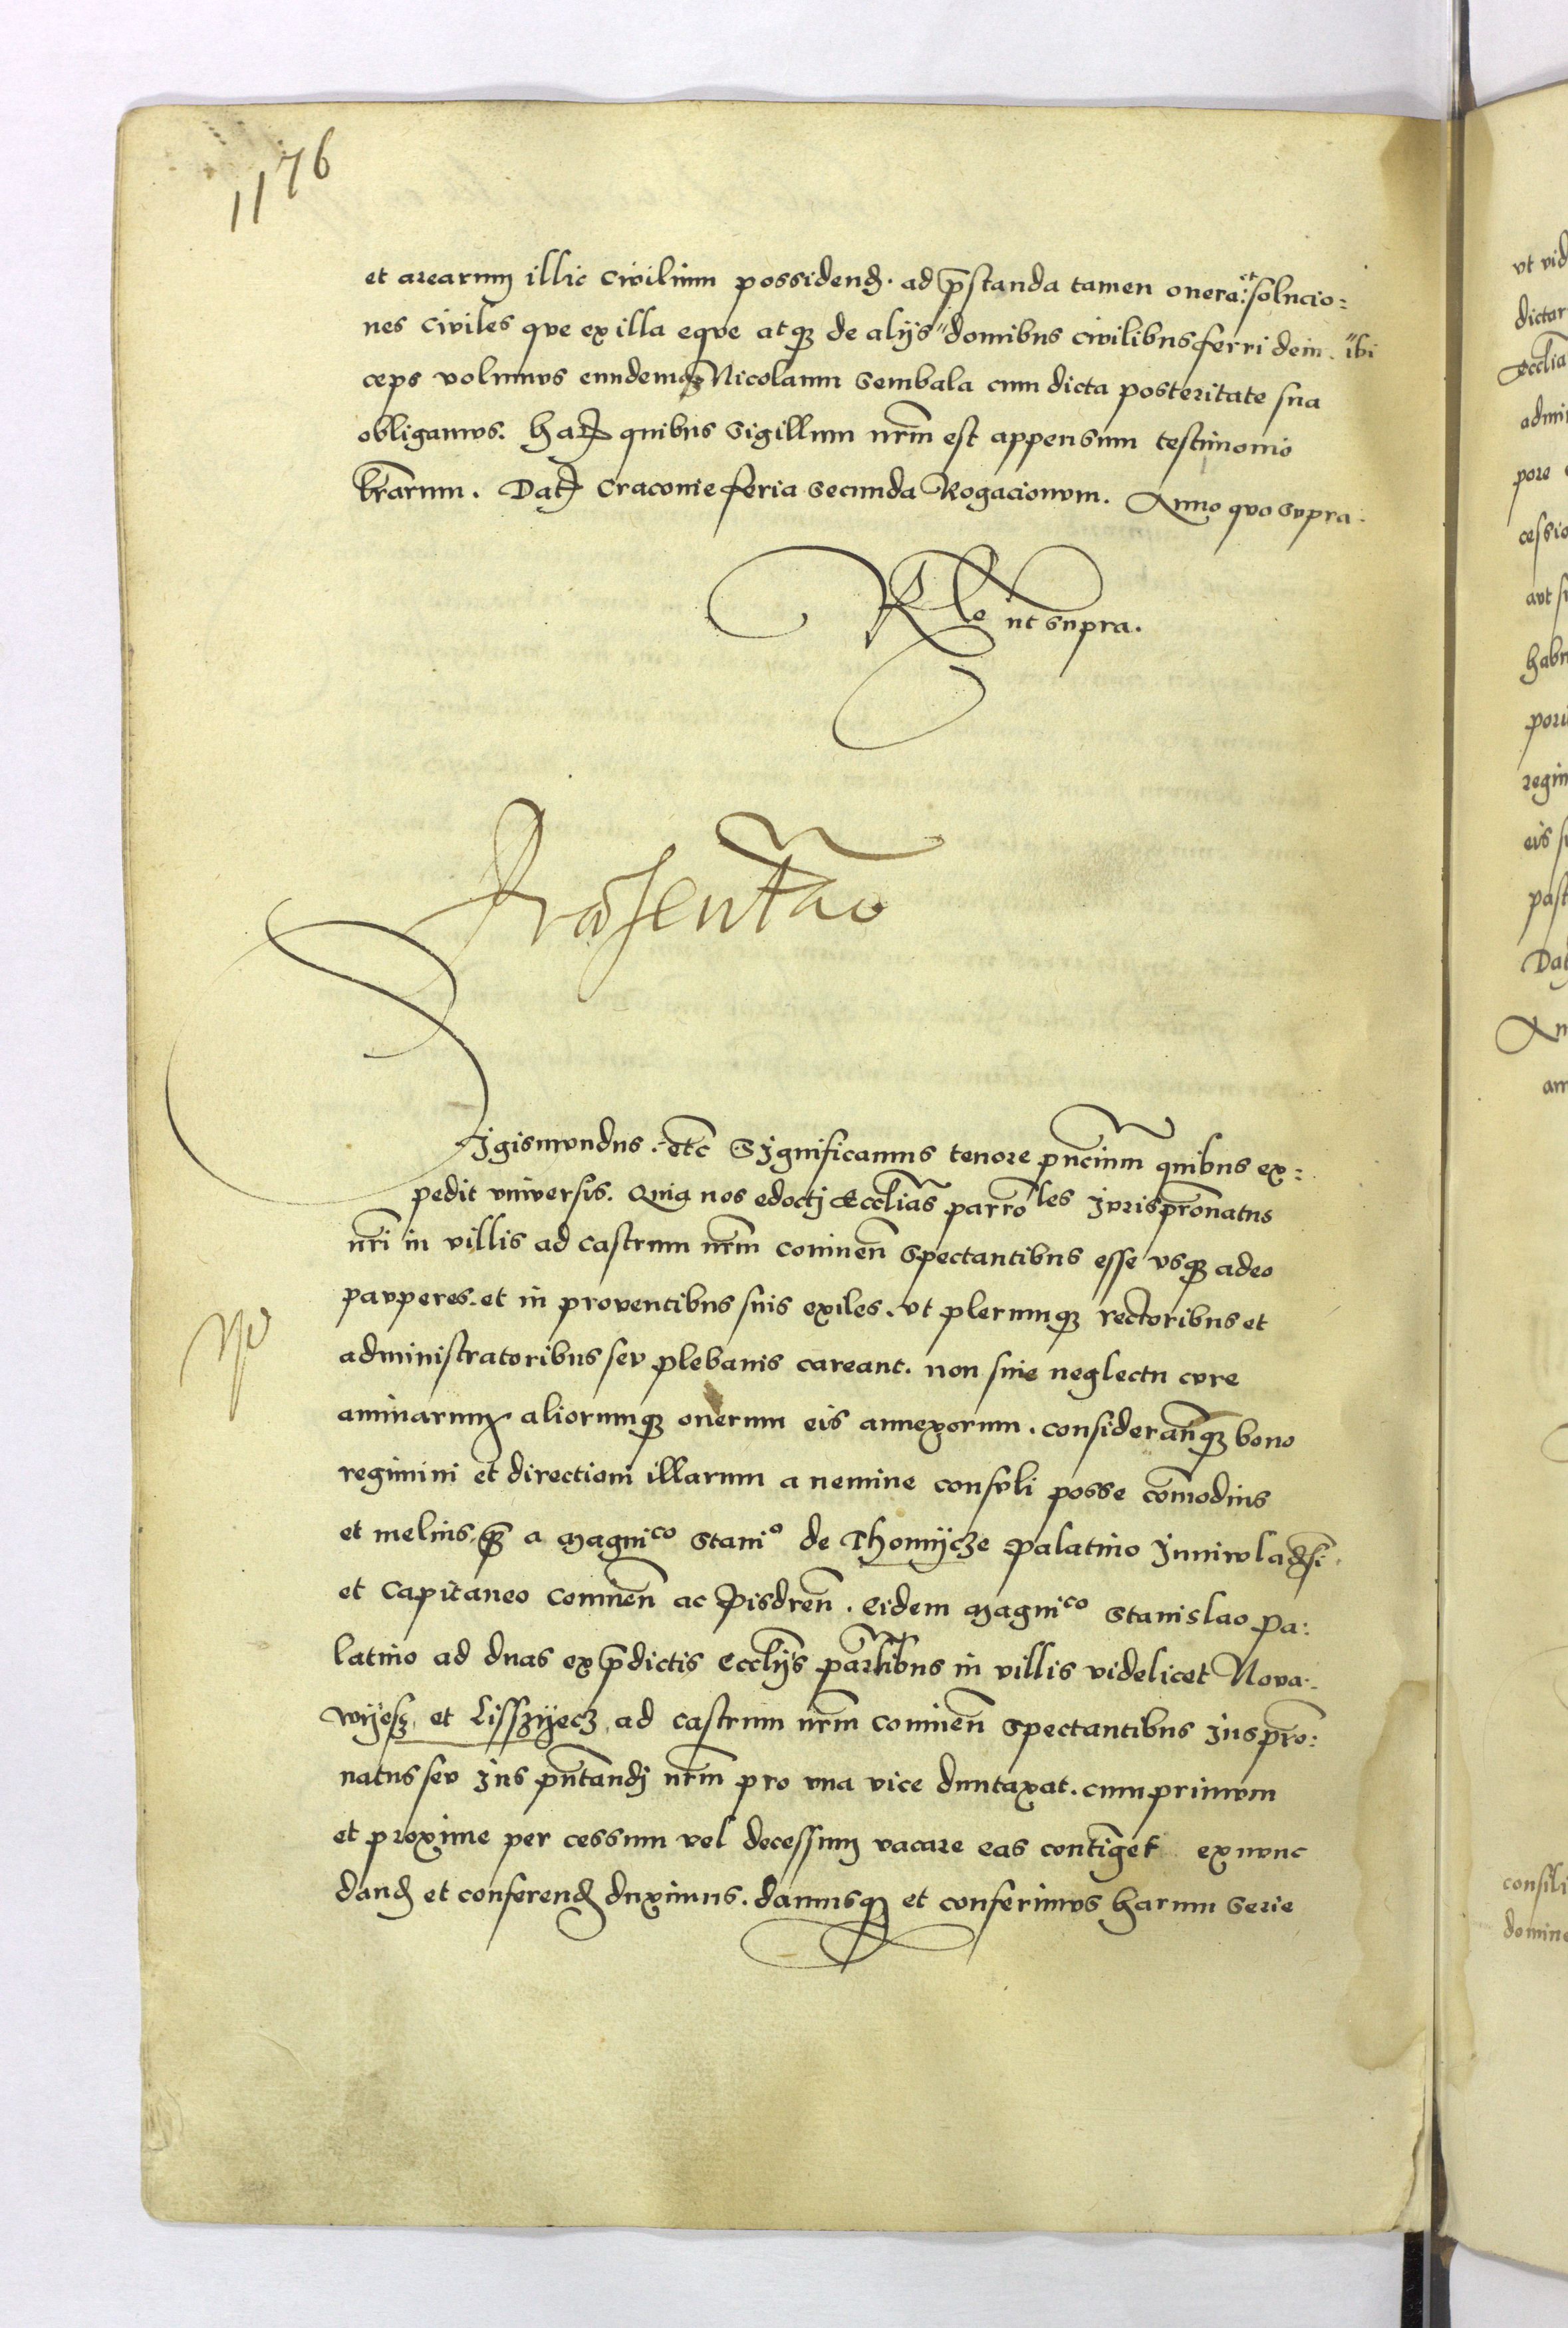 1176
et arearum illic civilium possidend. ad p̄standa tamen onera et solucio:
nes civiles que ex illa eque atq3 de alijs "domibus civilibus ferri dein. "ibi
ceps volumus eundemq3 Nicolaum Sembala cum dicta posteritate sua
obligamus. Har quibus Sigillum nr̄m est appensum testimonio
lr̄arum. Dat Cracovie feria secunda Rogacionum. Anno quo supra.
Rlo ut supra.
Præsentac̄o
Sigismundus. etc̄ Significamus tenore pn̄cium quibus ex:
pedit universis. Quia nos edocti Eccl̄ias parro les Jurispr̄onatus
nr̄i in villis ad castrum nr̄m Coninen̄ spectantibus esse usq3 adeo
pauperes. et in proventibus suis exiles. ut plerumq3 rectoribus et
administratoribus seu plebanis careant. non sine neglectu cure
animarum aliorumq3 onerum eis annexorum. consideran̄q3 bono
regimini et directioni illarum a nemine consuli posse com̄odius
et melius q̄3 a Magnico Stanio de Thomijcze palatino Juniwladsī.
et Capitaneo Coninen̄ ac Pisdren̄. Eidem Magnico Stanislao pa:
latino ad duas ex p̄dictis Eccl̄ijs par̄libus in villis videlicet Nova
wijesz et Lisszijecz ad castrum nr̄m Coninen̄ spectantibus Jus pr̄o:
natus seu Jus pn̄tandj nr̄m pro una vice duntaxat. cum primum
et proxime per cessum vel decessum vacare eas contīget ex nunc
dand et conferend duximus. damusq3 et conferimus harum serie